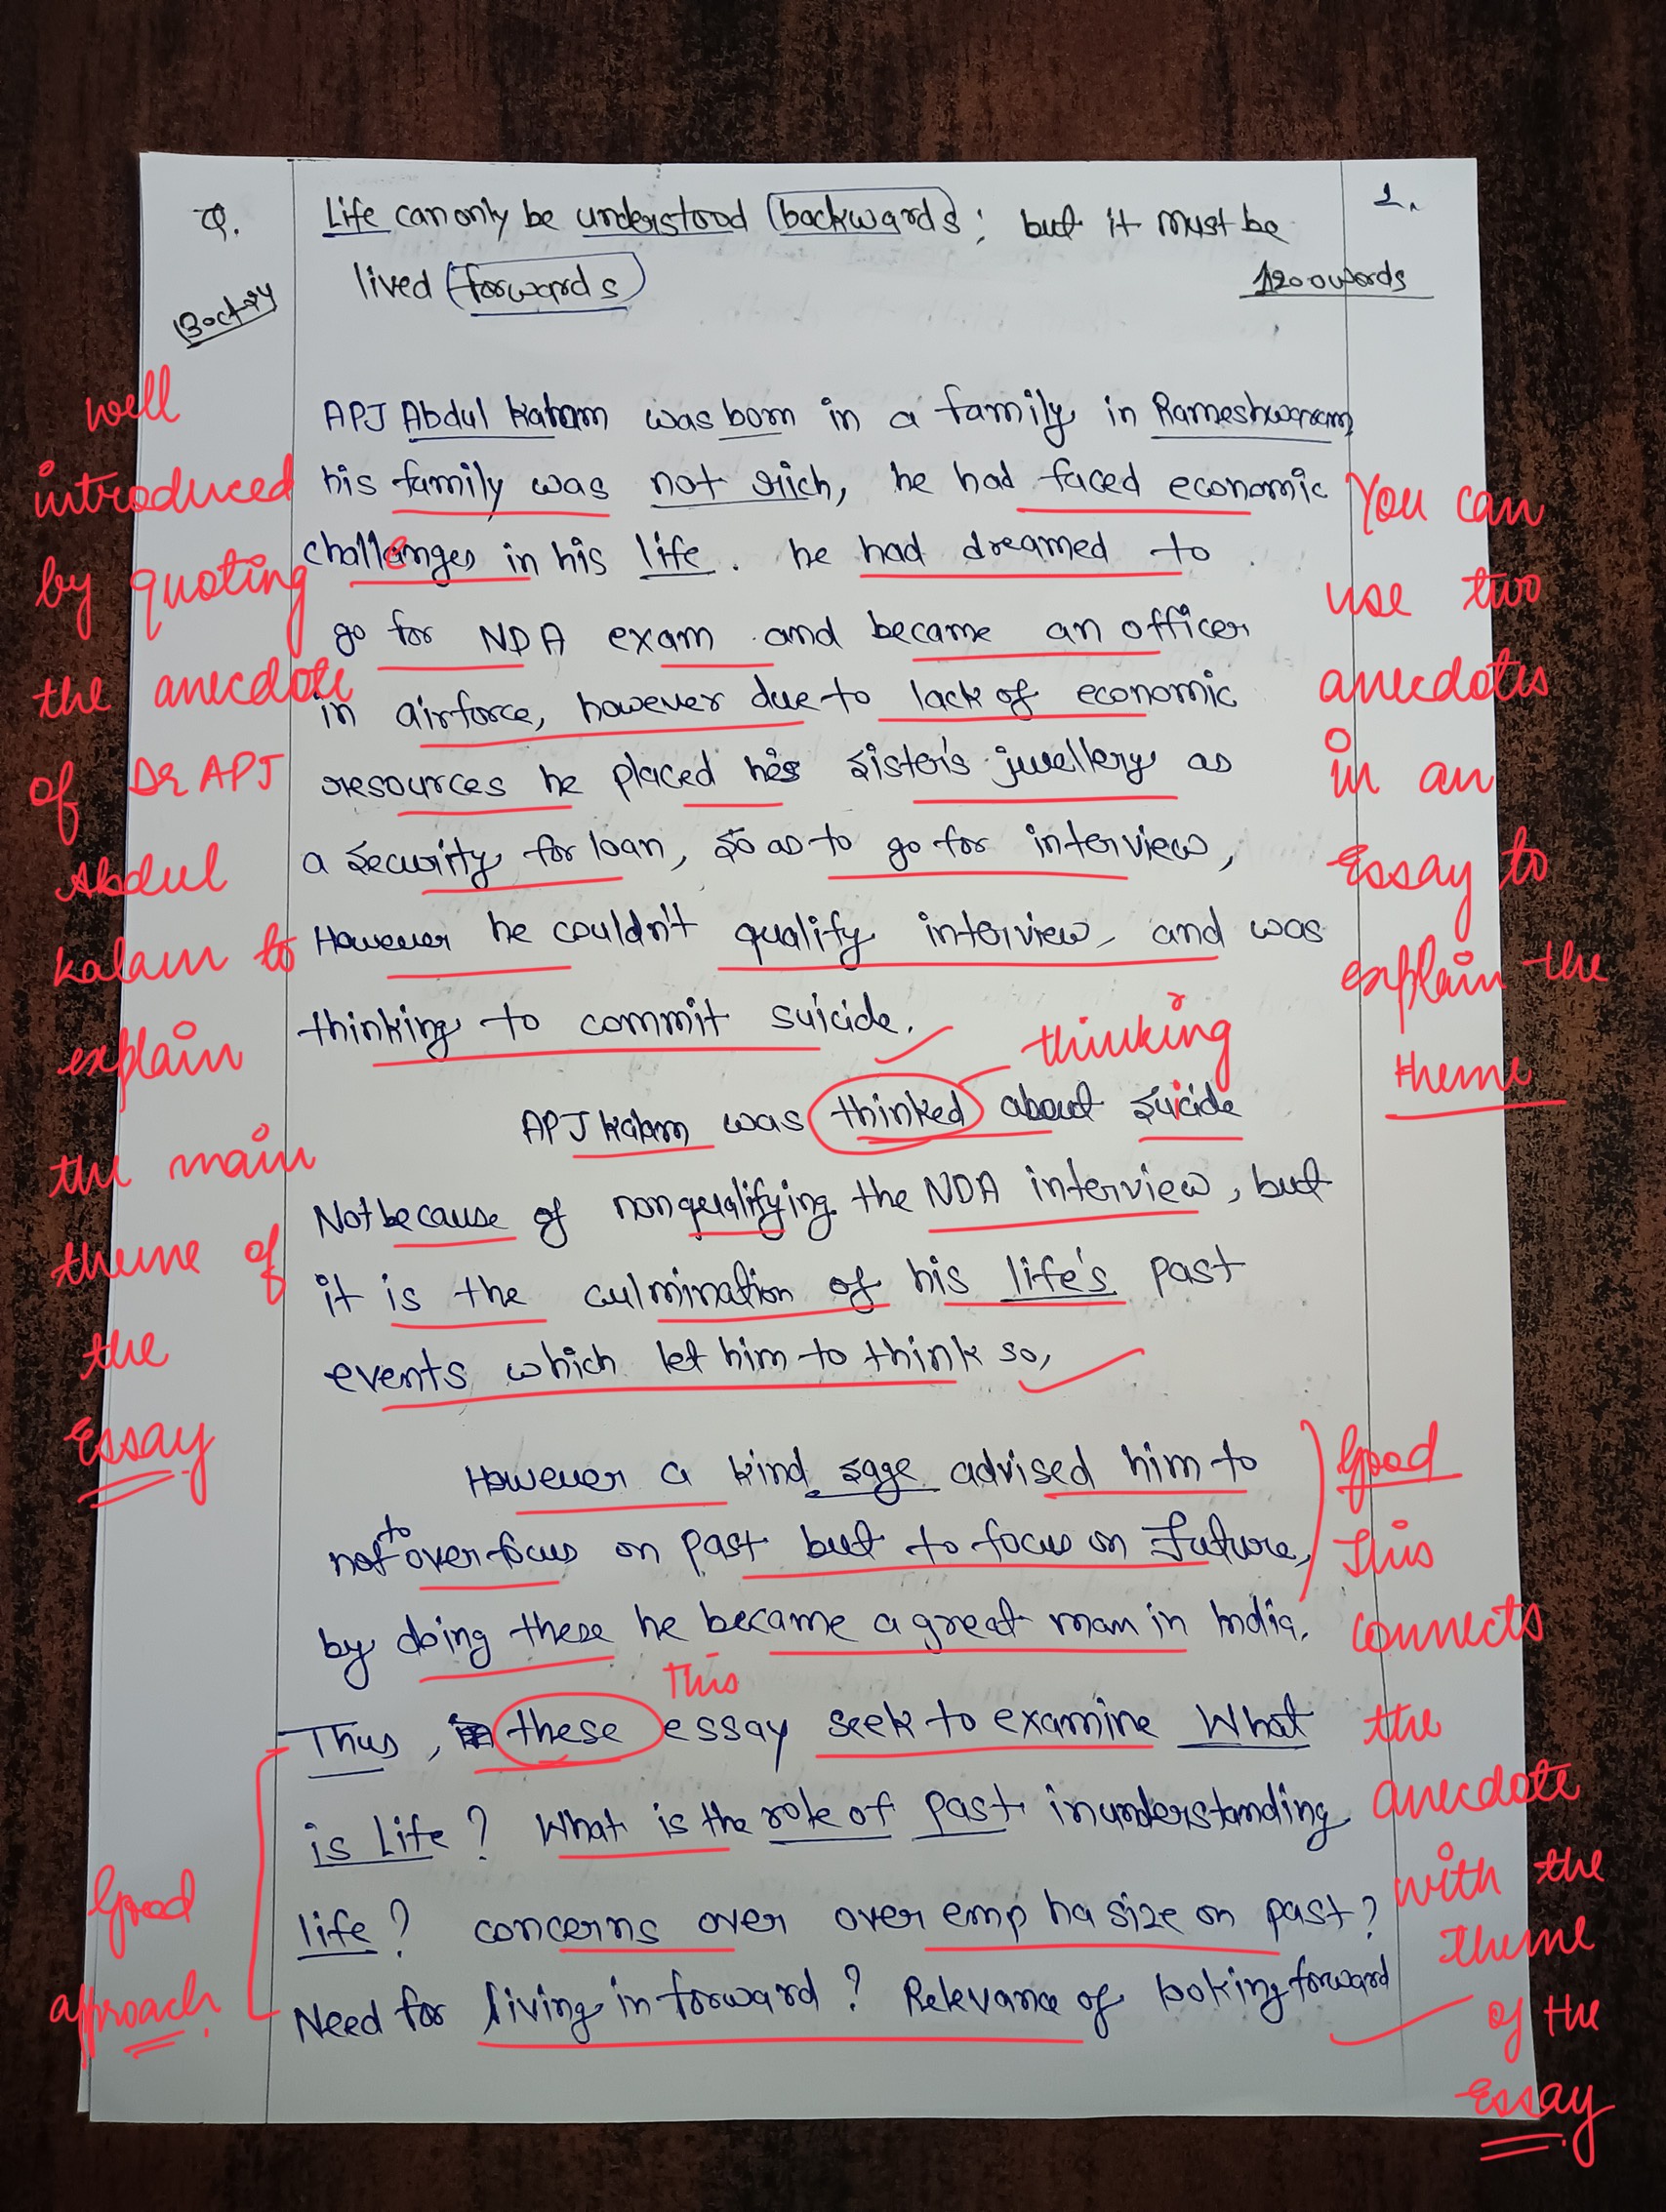 Q. Life can only be understood (backwards); but it must be 1.
lived (forwards) 1200 words
13 oct 24
APJ Abdul Kalam was born in a family in Rameshwaram
his family was not rich, he had faced economic
challenges in his life. he had dreamed to
go for NDA exam and became an officer
in airforce, however due to lack of economic
resources he placed his sister's jwellery as
a security for loan, so as to go for interview,
However he couldn't qualify interview, and was
thinking to commit suicide.
thinking
APJ Kalam was thinked about suicide
Not because of nonqualifying the NDA interview, but
it is the culmination of his life's past
events which let him to think so,
However a kind sage advised him to
not to over focus on past but to focus on Future,
by doing these he became a great man in India.
This
Thus, these essay seek to examine What
is Life? What is the role of past in understanding
life? concerns over over emphasize on past?
Need for living in forward? Relevance of looking forward
well
introduced
by quoting
the anecdote
of Dr APJ
Abdul
Kalam to
explain
the main
theme of
the
Essay
Good
approach.
You can
use two
anecdotes
in an
Essay to
explain the
theme
Good
This
connects
the
anecdote
with the
theme
of the
Essay